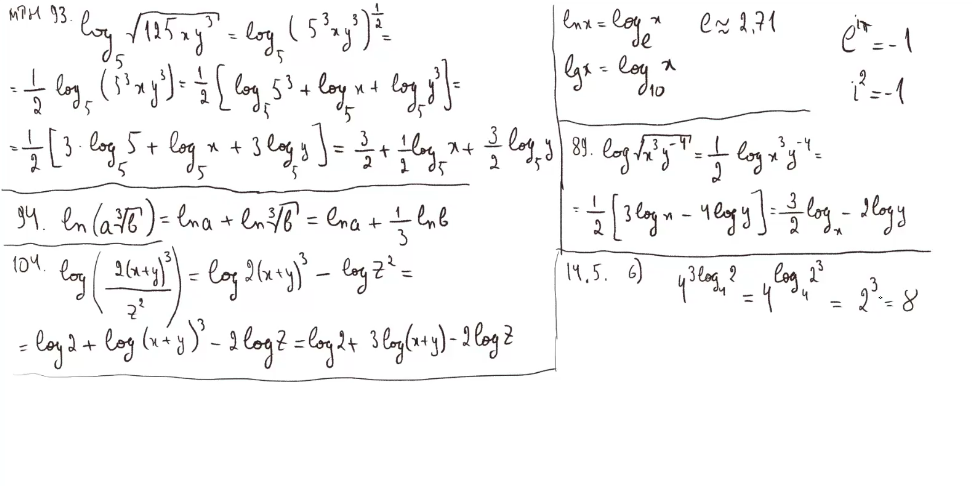 МРН 93. log₅ √(125xy³) = log₅ (5³xy³)^(1/2) =
= 1/2 log₅ (5³xy³) = 1/2 [log₅ 5³ + log₅ x + log₅ y³] =
= 1/2 [3 · log₅ 5 + log₅ x + 3 log₅ y] = 3/2 + 1/2 log₅ x + 3/2 log₅ y
94. ln(a ∛b) = ln a + ln ∛b = ln a + 1/3 ln b
104. log(2(x+y)³/z²) = log 2(x+y)³ − log z² =
= log 2 + log (x+y)³ − 2 log z = log 2 + 3 log(x+y) − 2 log z
ln x = logₑ x e ≈ 2,71
lg x = log₁₀ x
e^(iπ) = −1
i² = −1
89. log √(x³y⁻⁴) = 1/2 log x³y⁻⁴ =
= 1/2 [3 log x − 4 log y] = 3/2 log x − 2 log y
14.5. б) 4^(3 log₄ 2) = 4^(log₄ 2³) = 2³ = 8